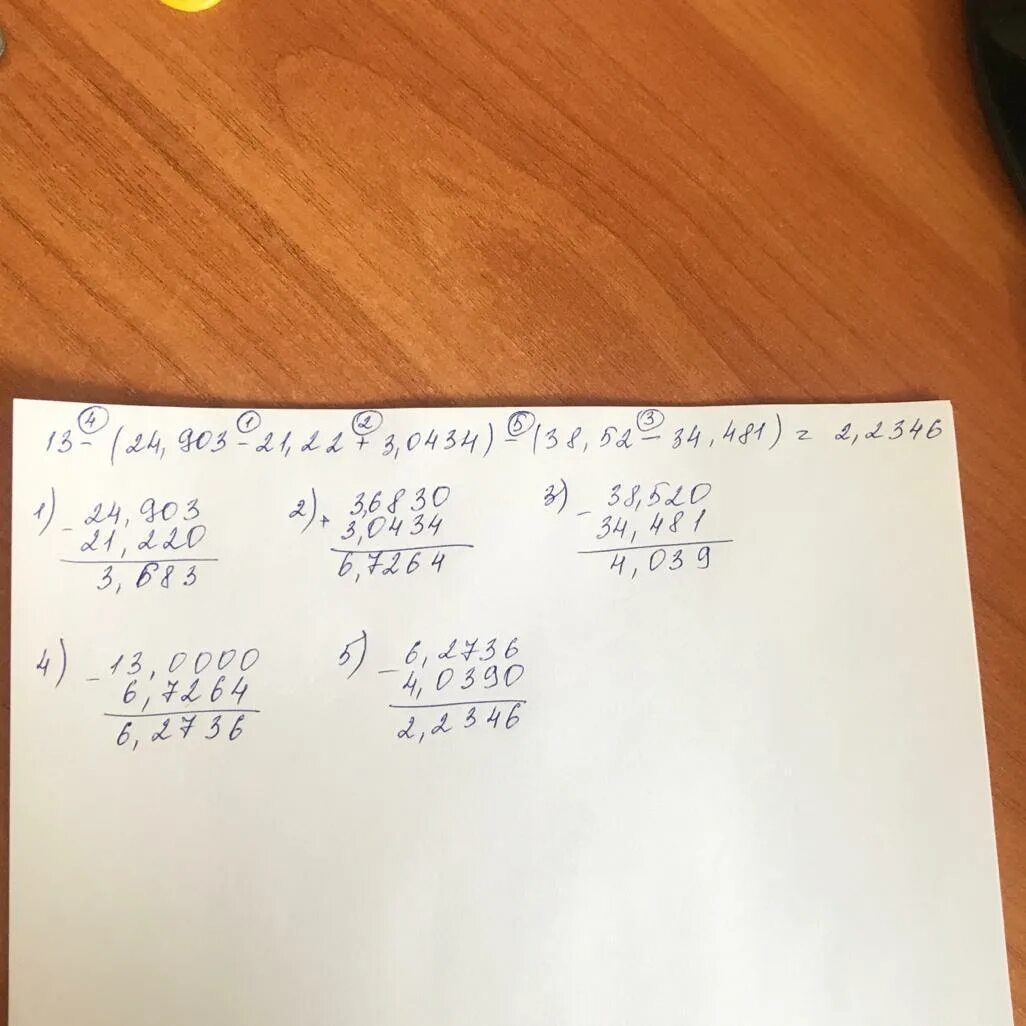 ④ ① ② ⑤ ③
13 - (24,903 - 21,22 + 3,0434) - (38,52 - 34,481) = 2,2346
1) - 24,903
21,220
3,683
2) + 3,6830
3,0434
6,7264
3) - 38,520
34,481
4,039
4) - 13,0000
6,7264
6,2736
5) - 6,2736
4,0390
2,2346